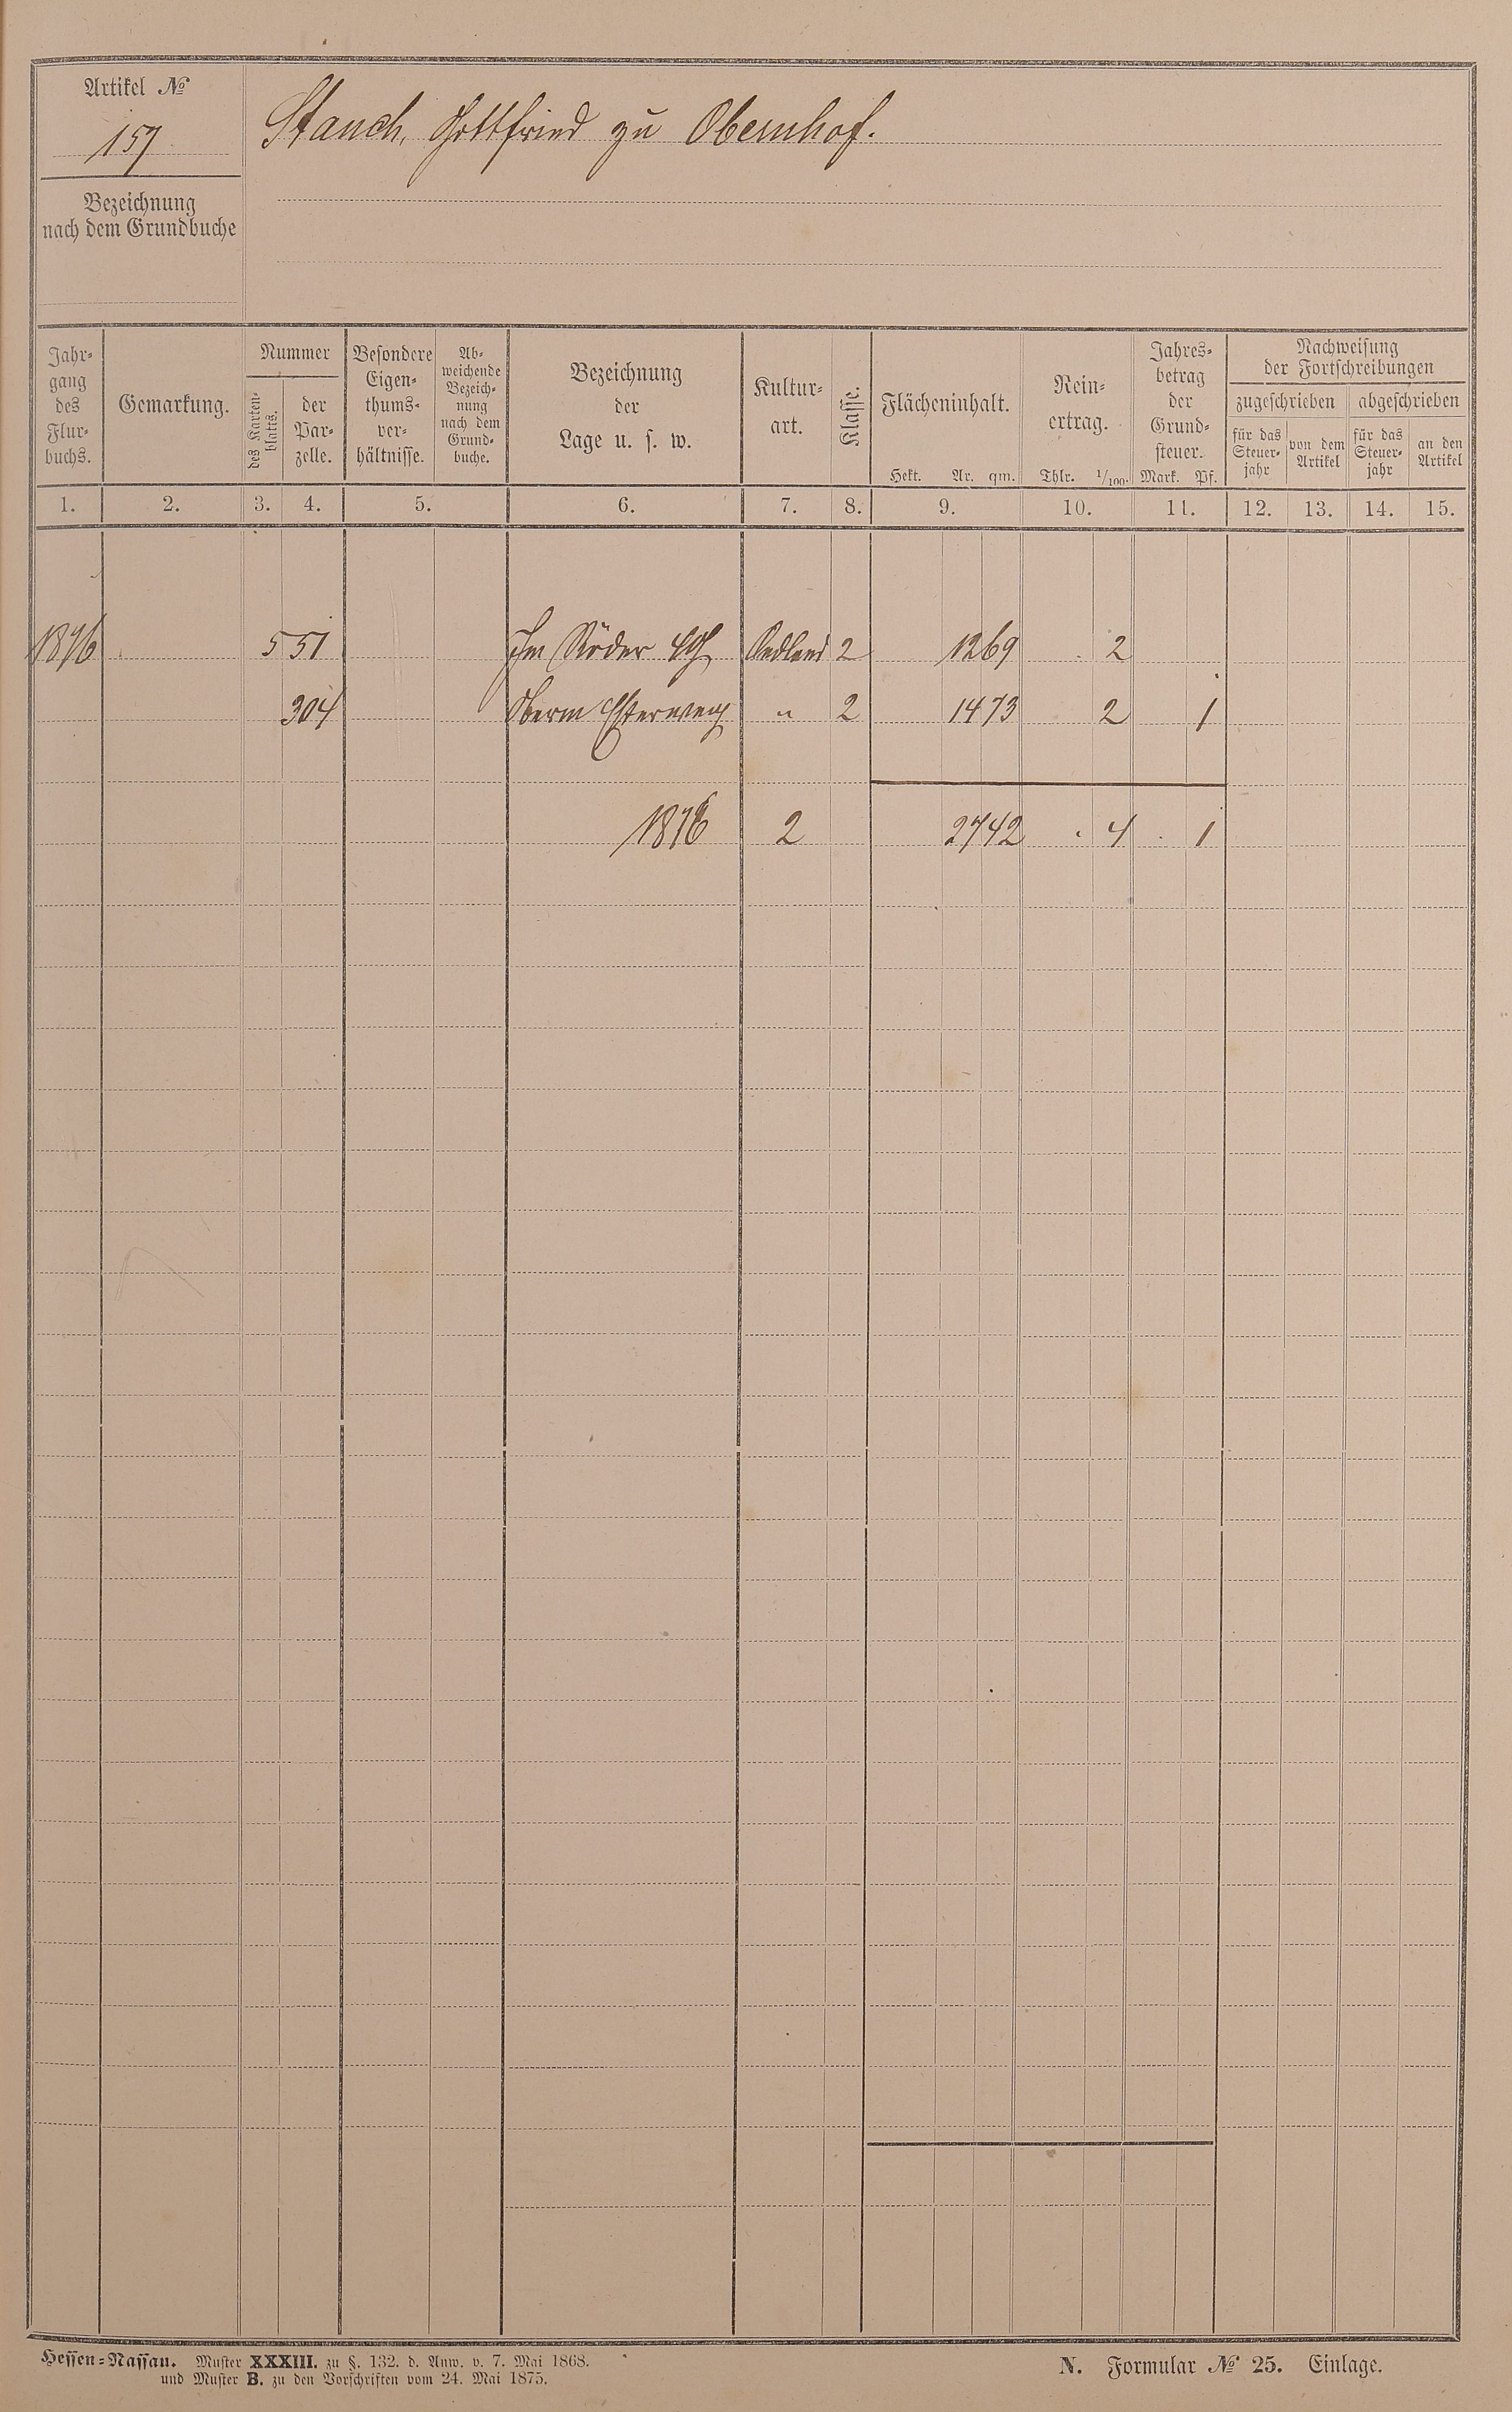 Artikel №
157
Stauch, Gottfried zu Obernhof.
Bezeichnung
nach dem Grundbuche
Jahr-
gang
des
Flur-
buchs.
Gemarkung.
Nummer
des Karten-
blatts.
der
Par-
zelle.
Besondere
Eigen-
thums-
ver-
hältnisse.
Ab-
weichende
Bezeich-
nung
nach dem
Grund-
buche.
Bezeichnung
der
Lage u. s. w.
Kultur-
art.
Klasse.
Flächeninhalt.
Hekt. Ar. qm.
Rein-
ertrag.
Thlr. 1/100.
Jahres-
betrag
der
Grund-
steuer.
Mark. Pf.
Nachweisung
der Fortschreibungen
zugeschrieben abgeschrieben
für das
Steuer-
jahr
von dem
Artikel
für das
Steuer-
jahr
an den
Artikel
1. 2. 3. 4. 5. 6. 7. 8. 9. 10. 11. 12. 13. 14. 15.
1876 5 51 Im Röder Oedland 2 12 69 . 2
304 Oberm " 2 14 73 2 1
1876 2 27 42 . 4 . 1
Hessen-Nassau. Muster XXXIII. zu §. 132. d. Anw. v. 7. Mai 1868.
und Muster B. zu den Vorschriften vom 24. Mai 1875.
N. Formular № 25. Einlage.